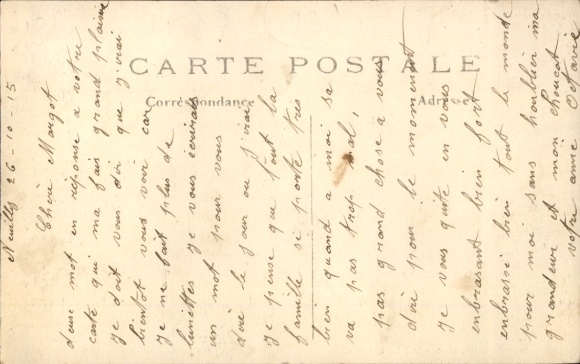 CARTE POSTALE
Correspondance
Adresse
Neuilly 26-10-15
Chère Margot
deux mot en réponse a votre
carte qui ma fais grand plaisir
je doit vous dir que j'irai
bientot vous voir car
je ne fait plus de
lunettes je vous écrirais
un mot pour vous
dire le jour ou j'irai
je pense que tout la
famille se porte tres
bien quand a moi sa
va pas trop mal,
pas grand chose a vous
dire pour le moment
je vous quite en vous
enbrasant bien fort
enbrassé bien tout le monde
pour moi sans houblier ma
grandeur et mon
votre amie Octavie